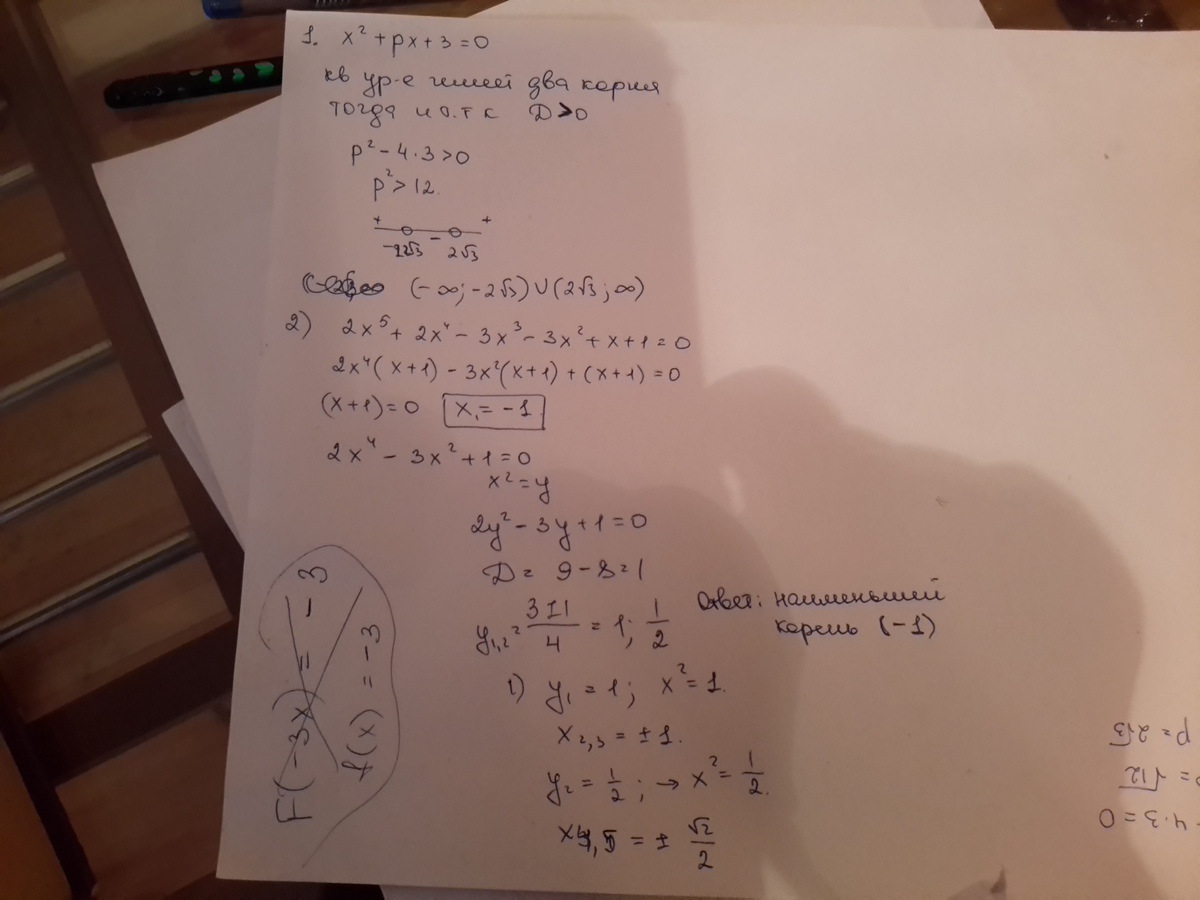 1. x² + px + 3 = 0
кв ур-е имеет два корня
тогда и т. т к D > 0
p² - 4·3 > 0
p² > 12.
+ - +
-2√3 2√3
(-∞; -2√3) ∪ (2√3; ∞)
2) 2x⁵ + 2x⁴ - 3x³ - 3x² + x + 1 = 0
2x⁴(x+1) - 3x²(x+1) + (x+1) = 0
(x+1) = 0 x₁ = -1
2x⁴ - 3x² + 1 = 0
x² = y
2y² - 3y + 1 = 0
D = 9 - 8 = 1
y₁,₂ = (3±1)/4 = 1; 1/2
Ответ: наименьший
корень (-1)
1) y₁ = 1; x² = 1.
x₂,₃ = ±1.
y₂ = 1/2; → x² = 1/2.
x₄,₅ = ± √2/2
F(-3x) = -3
f(x) = -3
- 4·3 = 0
p = √12
p = 2√3